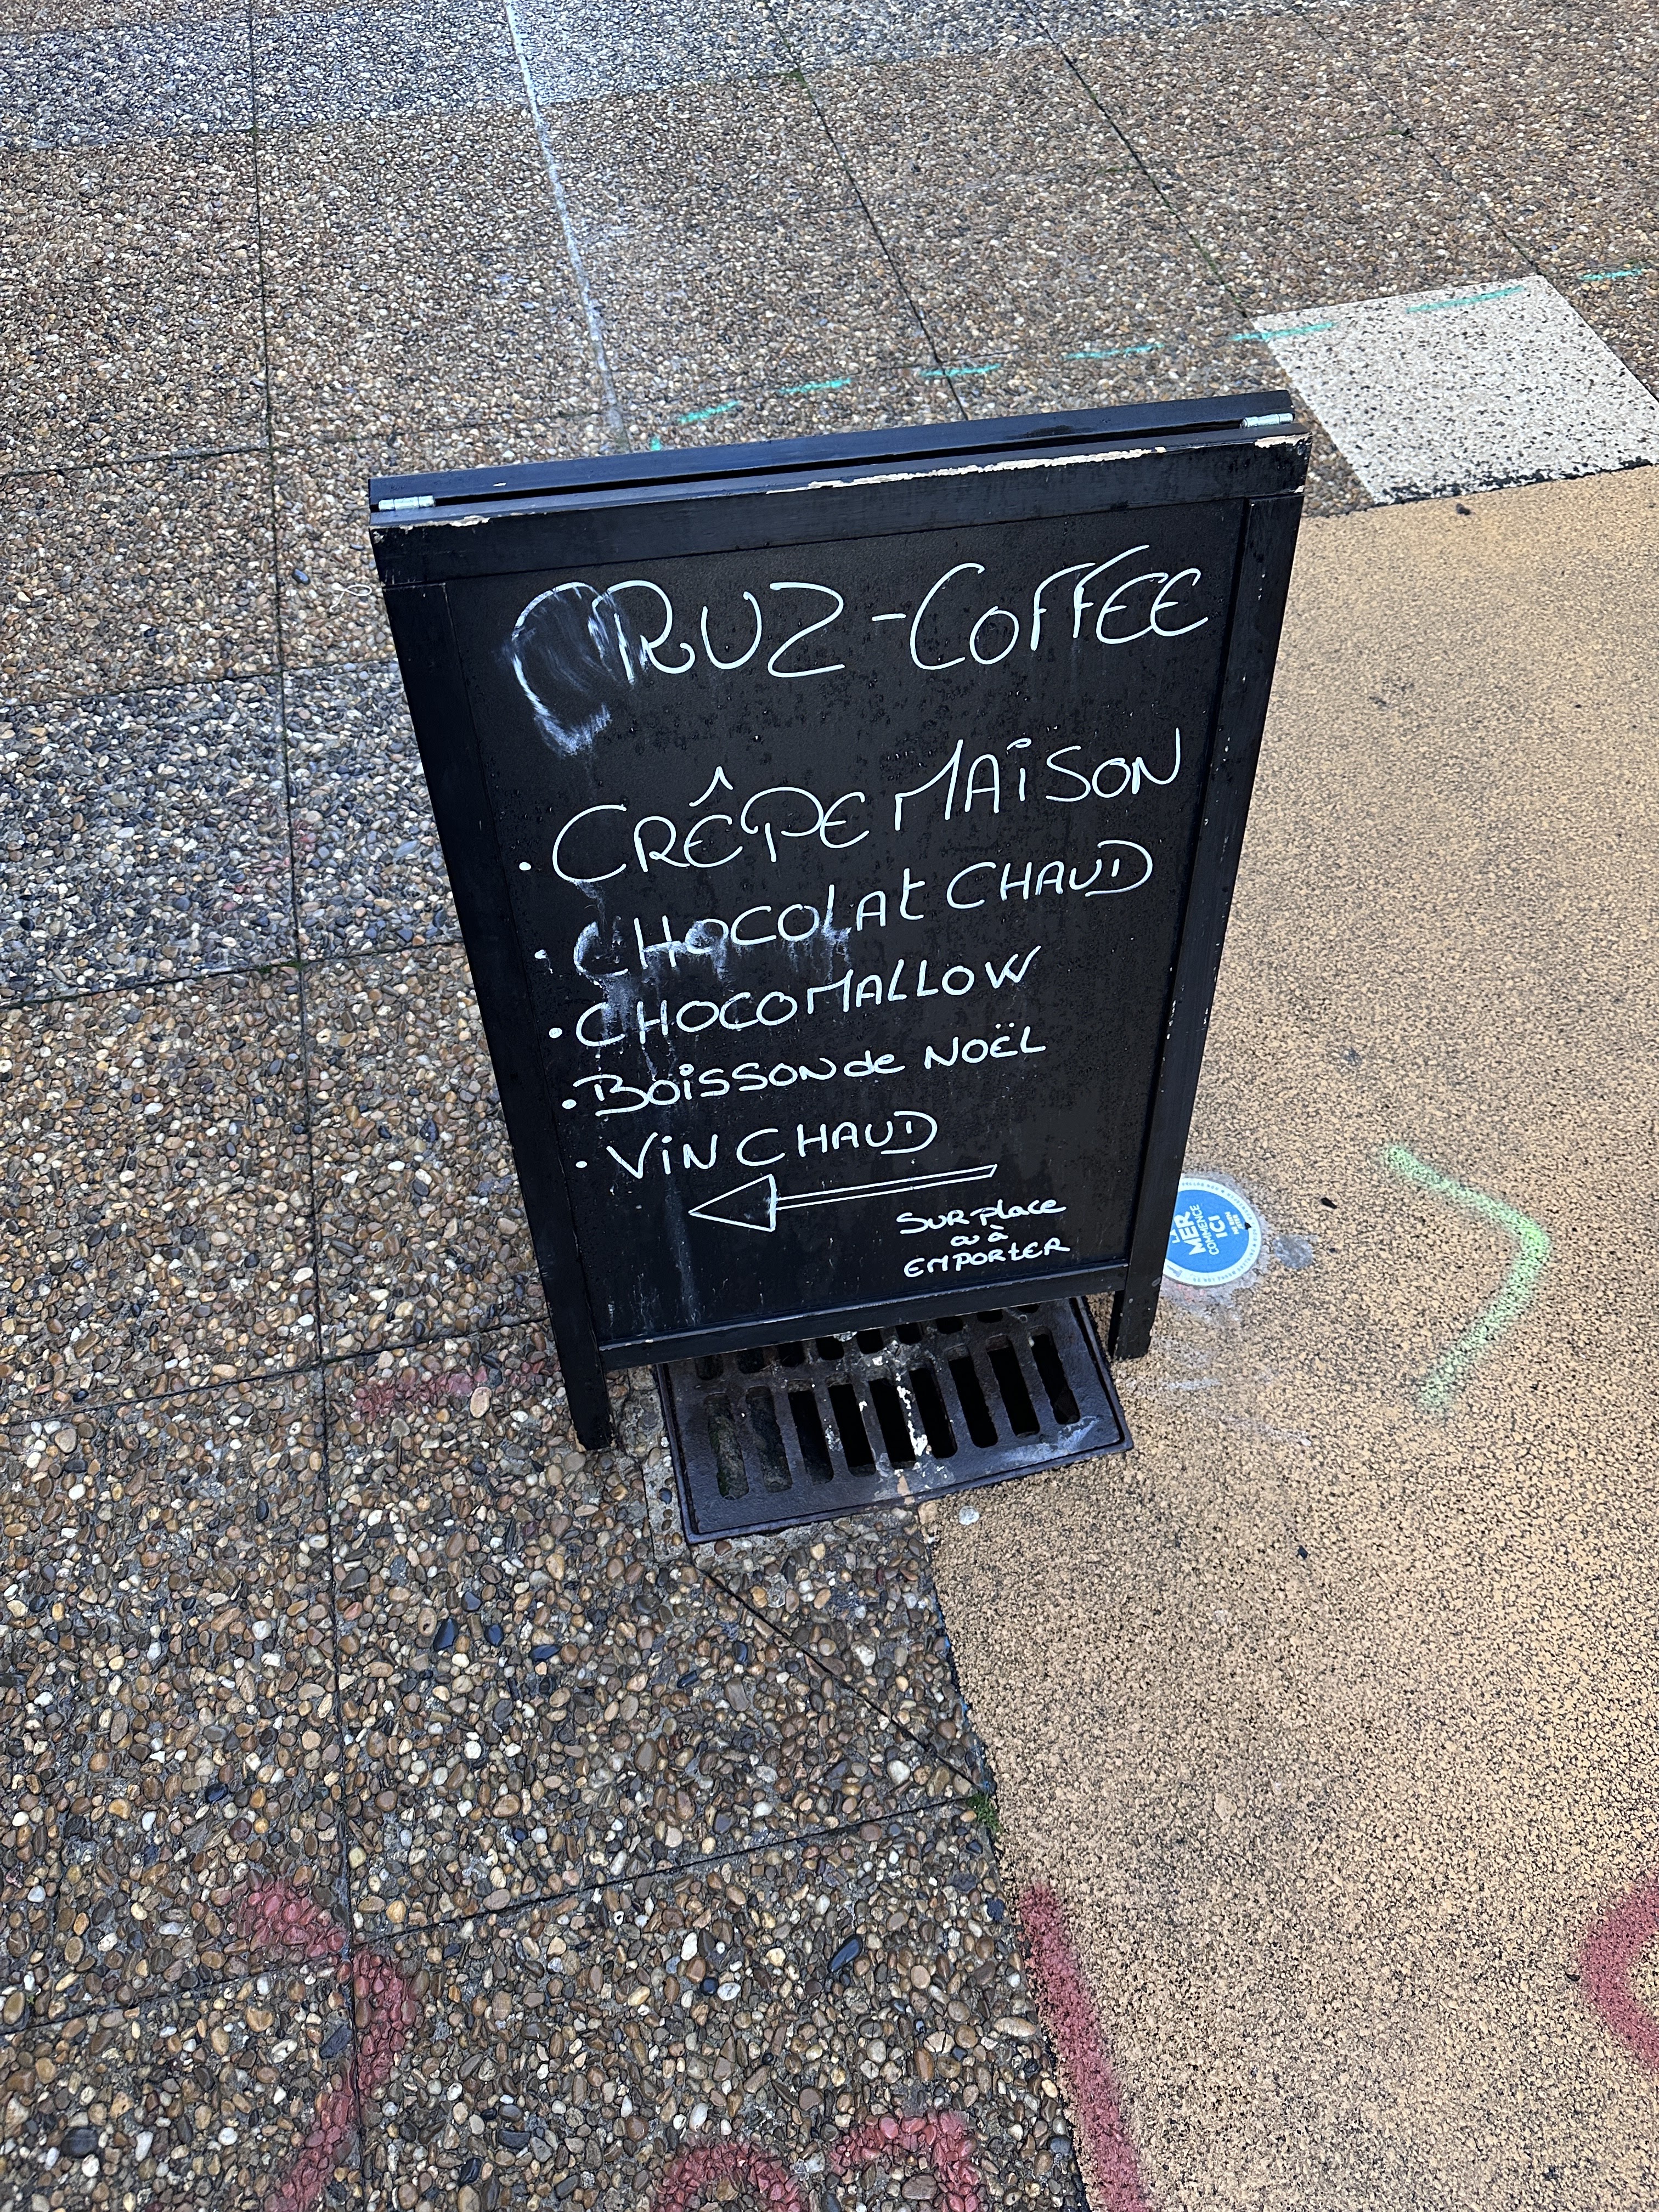 CRUZ-COFFEE
• CRÊPE MAISON
• CHOCOLAt CHAUD
• CHOCOMALLOW
• BOISSON de NOËL
• ViN CHAUD
SUR place
ou à
EMPORtER
LA
MER
COMMENCE
ICI